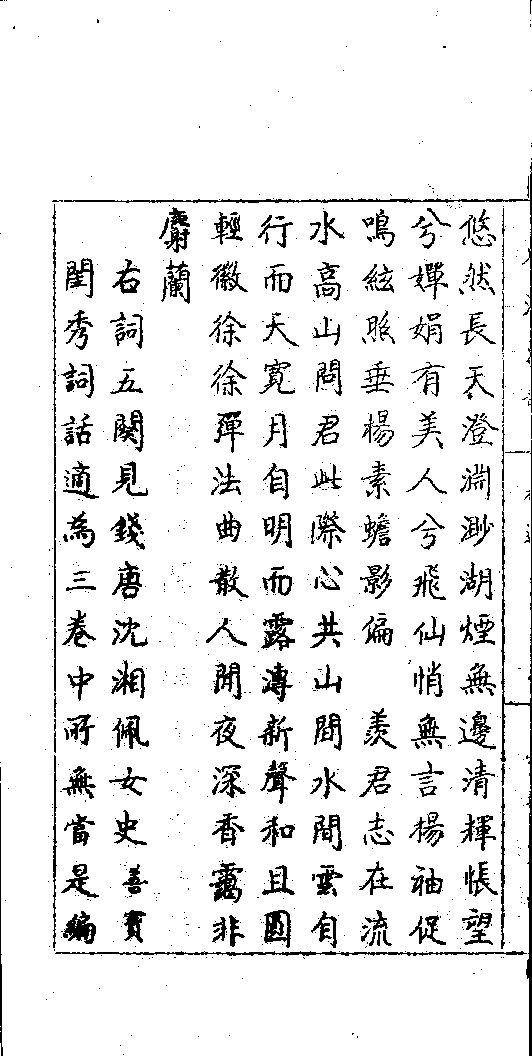 悠然長天澄淵渺湖煙無邊清輝悵望
兮嬋娟有美人兮飛仙悄無言揚袖促
鳴絃照垂楊素蟾影偏　羨君志在流
水高山問君此際心共山間水間雲自
行而天寬月自明而露漙新聲和且圓
輕徽徐徐彈法曲散人間夜深香靄非
麝蘭
右詞五闋見錢唐沈湘佩女史善寶
閨秀詞話適為三卷中所無當是編